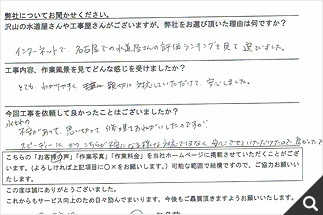 弊社についてお聞かせください。
沢山の水道屋さんや工事屋さんがございますが、弊社をお選び頂いた理由は何ですか?
インターネットで 名古屋での水道屋さんの評価ランキングで見て 選びました。
工事内容、作業風景を見てどんな感じを受けましたか?
とても、わかりやすく 親切に対応していただけて、安心しました。
今回工事を依頼して良かったことはございましたか?
水もれの
不安があって、思いきって 修理をおねがいしたのですが
スピーディーに、かつ こちらが
こちらの「お客様の声」「作業写真」「作業料金」を当社ホームページに掲載させていただくことがござ
います。(よろしければ上記項目に○×をお願いします。)可能な範囲で結構ですので、ご協力お願い
いたします。
この度は誠にありがとうございました。
これからもサービス向上のため日々励んでまいります。今後もご贔屓頂きますようお願いいたします。